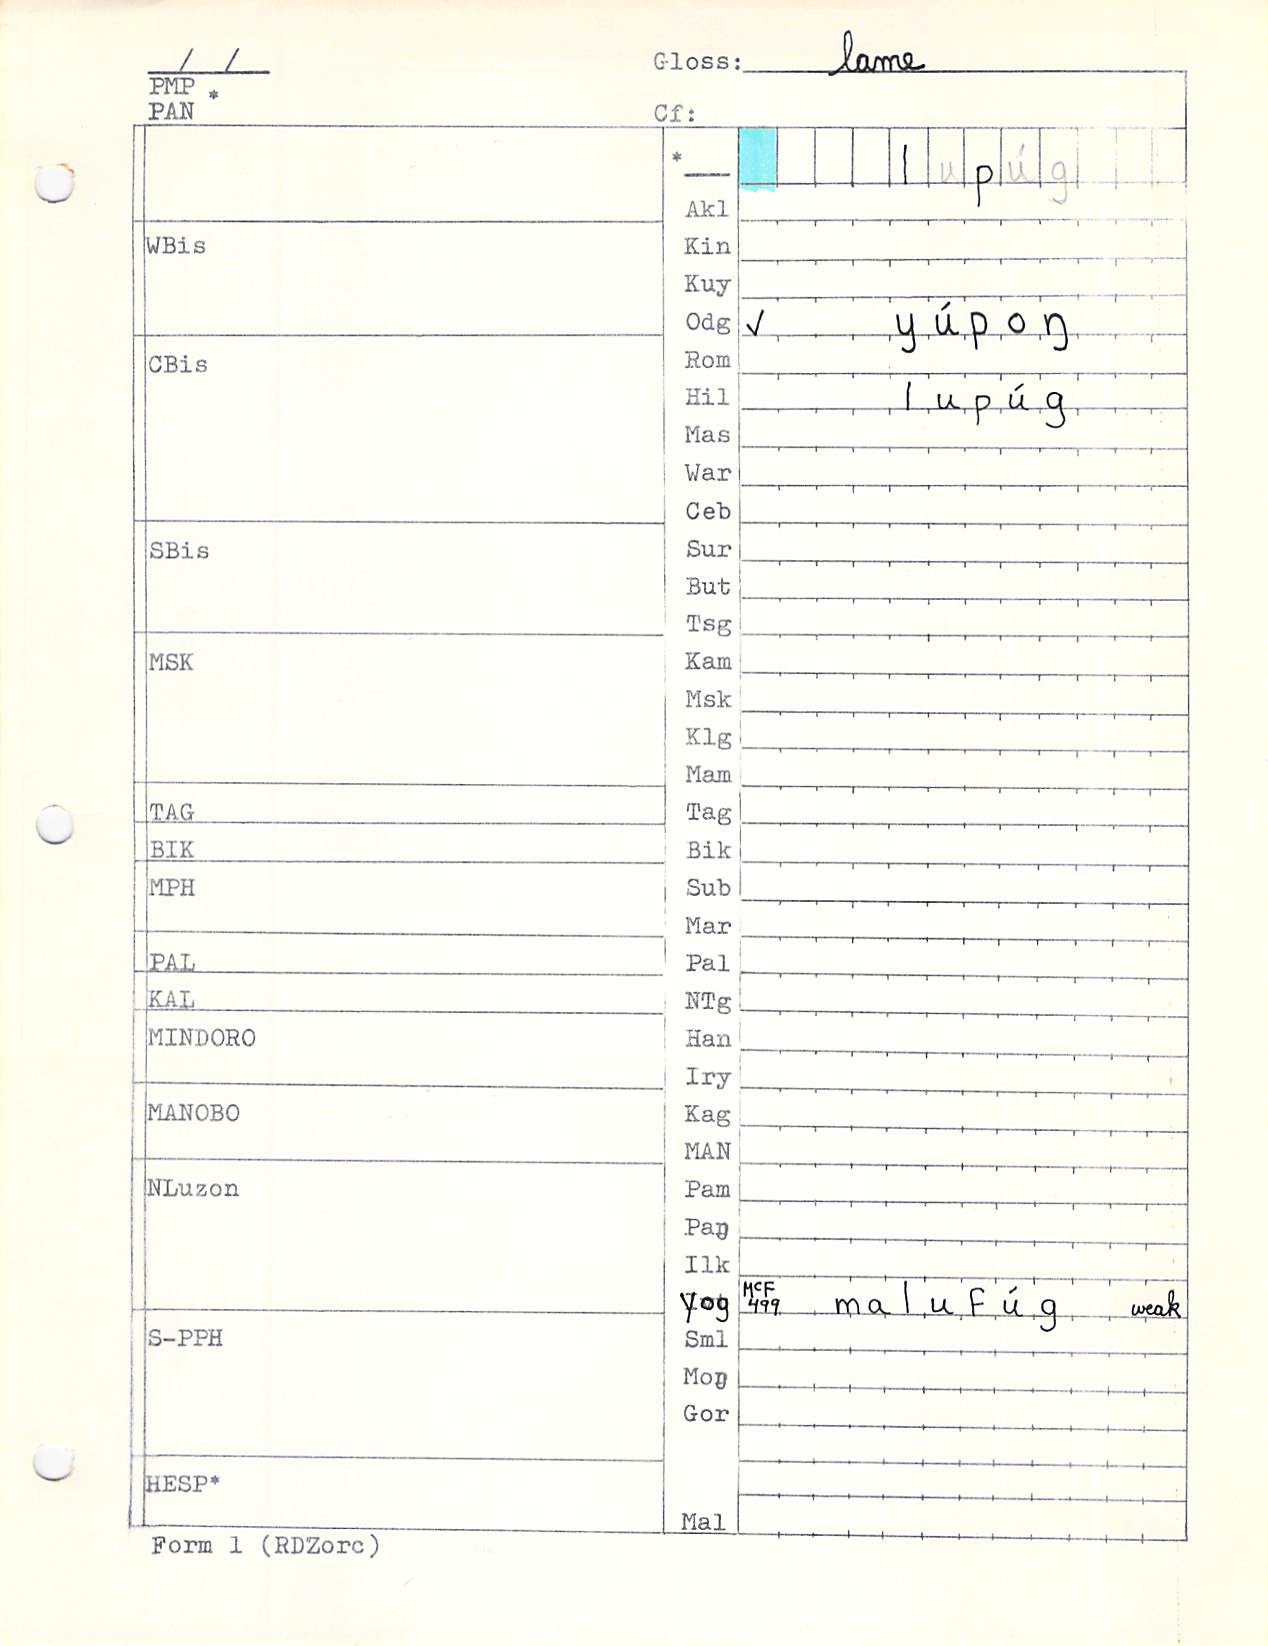 / /
Gloss: lame
PMP *
PAN
Cf:
* lupúg
Akl
WBis
Kin
Kuy
Odg ✓ yúpoŋ
CBis
Rom
Hil lupúg
Mas
War
Ceb
SBis
Sur
But
Tsg
MSK
Kam
Msk
Klg
Mam
TAG
Tag
BIK
Bik
MPH
Sub
Mar
PAL
Pal
KAL
NTg
MINDORO
Han
Iry
MANOBO
Kag
MAN
NLuzon
Pam
Paŋ
Ilk
Yog McF 499 malufúg weak
S-PPH
Sml
Moŋ
Gor
HESP*
Mal
Form 1 (RDZorc)